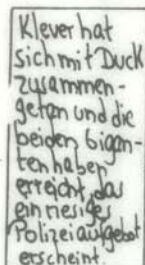 Klever hat
sich mit Duck
zusammen-
getan und die
beiden Gigan-
ten haben
erreicht, das
ein riesiges
Polizeiaufgebot
erscheint.